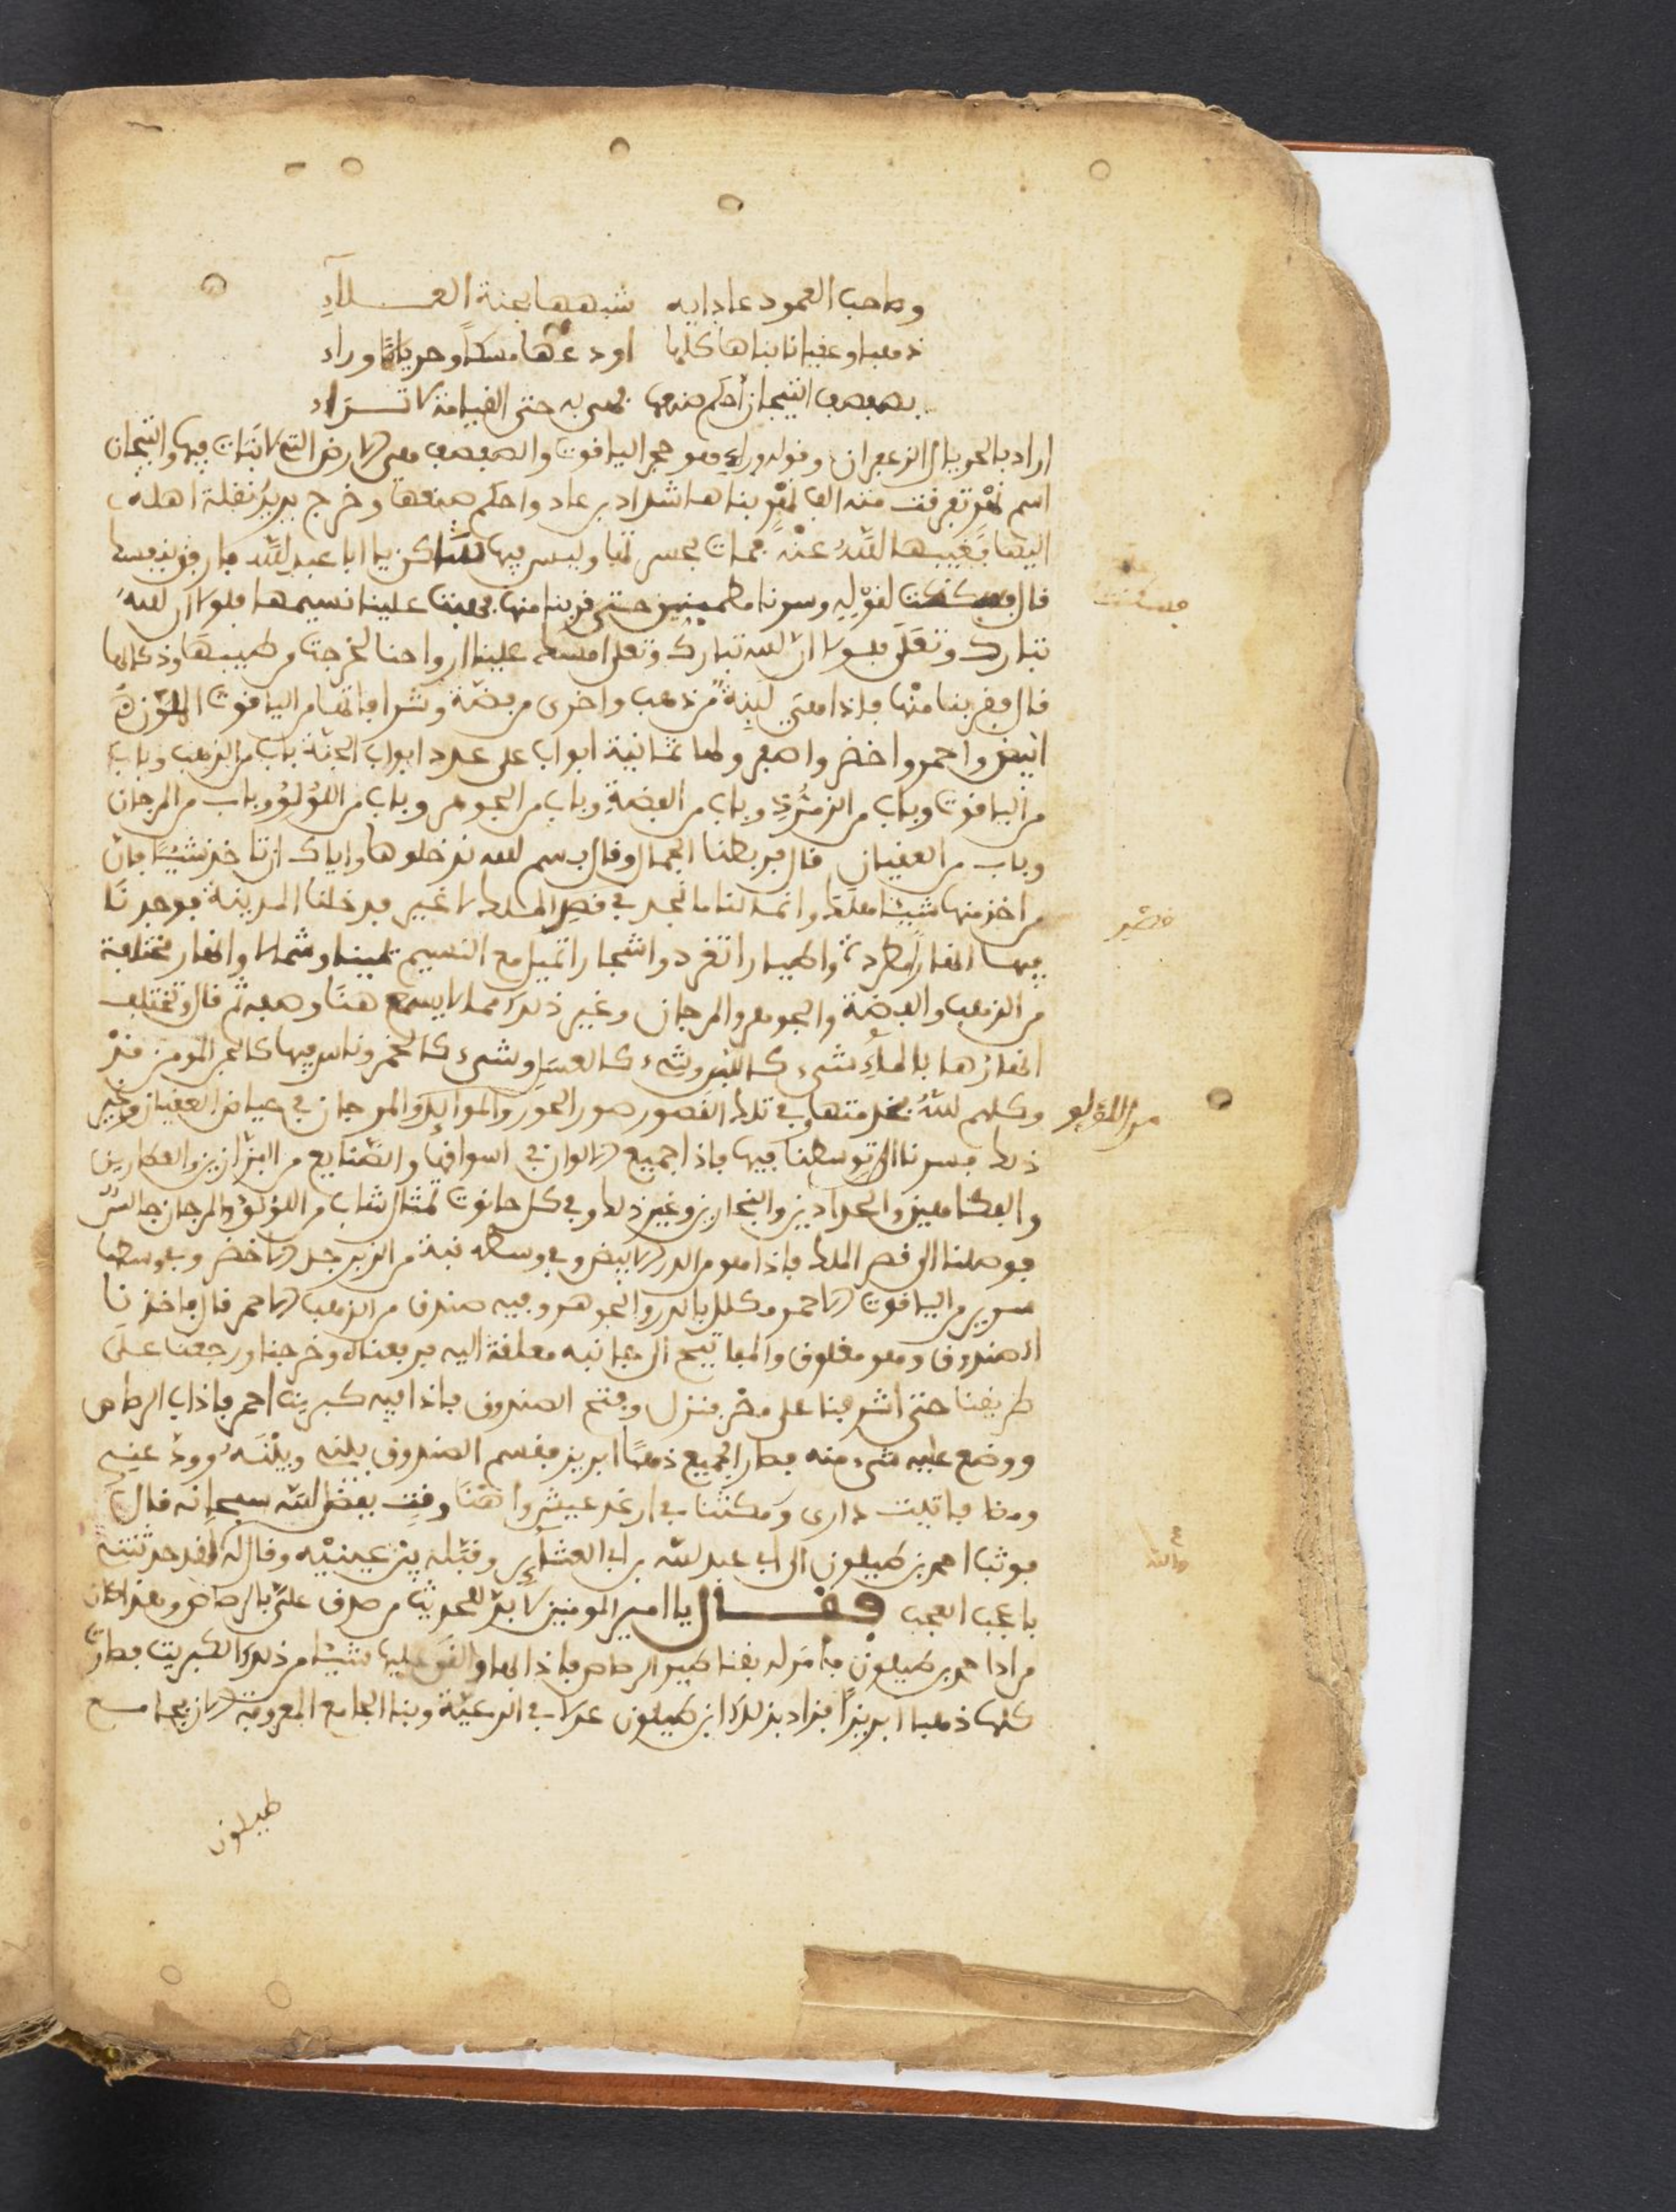 وصاحب العمود عاد ايه شبهها بجنة العــلاء
ذهبا وعقيانا بناها كلها اودعها مسكا وحريانا وراء
بصفصف التيجان احكم صنعها فهي به حتى القيامة لا تــراء
اراد بالحريان الزعفران وقوله وراء وهو حجر الياقوت والصفصف هي الارض التي لا نبات فيها والتيجان
اسم نهر تعرفت منه الف نهر بناها شداد بن عاد واحكم صنعها وخرج يريد نقلة اهله
اليها فغيبها الله عنه فمات بحسرتها وليس فيها ساكن يا ابا عبد الله فارفق بنفسك
قال فسكنت لقوله وسرنا مطمينين حتى قربنا منها فهبت علينا نسيمها فلولا ان الله
تبارك وتعلى فلولا ان الله تبارك وتعلى امسك علينا ارواحنا لخرجت من طيبها وذكائها
قال فقربنا منها فاذا هي لبنة من ذهب واخرى من فضة وشرافاتها من الياقوت الملون
ابيض واحمر واخضر واصفر ولها ثمانية ابواب على عدد ابواب الجنة باب من الذهب وباب
من الياقوت وباب من الزمرد وباب من الفضة وباب من الجوهر وباب من اللؤلؤ وباب من المرجان
وباب من العقيان قال فربطنا الجمال وقال بسم الله ندخلوها واياك ان تاخذ شيئا فان
من اخذ منها شيئا هلك وانما لنا ما نجد في قصر الملك لا غير فدخلنا المدينة فوجدنا
قصر
فيها انهارا تطرد واطيارا تغرد واشجارا تميل مع النسيم يمينا وشمالا وانهار مختلفة
من الذهب والفضة والجوهر والمرجان وغير ذلك مما لا يسمع هنا وصفه ثم قال وتختلف
انهارها بالماء شيء كاللبن وشيء كالعسل وشيء كالخمر وناس فيها كالبحر المومن قد
وكلهم الله بخدمتها وفي تلك القصور صور الحور والموائد والمرجان في حياض العقيان وغير
من اللؤلؤ
ذلك فسرنا الى توسطنا فيها فاذا جميع الالوان في اسواقها والصنايع من البزازين والعطارين
والحدادين والنجارين وغير ذلك وفي كل حانوت تمثال شاب من اللؤلؤ والمرجان جالس
فوصلنا الى قصر الملك فاذا هو من الدر الابيض وفي وسطه قبة من الزبرجد الاخضر وفي وسطها
سرير من الياقوت الاحمر مكلل بالدر والجوهر وفيه صندق من الذهب الاحمر قال فاخذنا
الصندوق وهو مغلوق والمفاتيح الى جانبه معلقة اليه فرفعناه وخرجنا ورجعنا على
طريقنا حتى اشرفنا على مصر فنزل وفتح الصندوق فاذا فيه كبريت احمر فاذاب الرصاص
ووضع عليه شيء منه فصار الجميع ذهبا ابريز فقسم الصندوق بينه وبينه وودعنى
ومضا فاتيت دارى ومكثنا في ارغد عيش واهنا وقت بفضل الله سبحانه قال
فوثب احمد بن طيلون الى ابي عبد الله بن ابي العشاير وقبله بين عينيه وقال له لقد حدثتنى
باعجب العجب فقــال يا امير المومنين لا بد للحديث من صدق علي بالرصاص وهذا كان
مراد احمد بن طيلون فامر له بقناطير الرصاص فاذابها والقى عليها شيئا من ذلك الكبريت فصارت
كلها ذهبا ابريزا فزاد بذلك ابن طيلون عدلا في الرعية وبنا الجامع المعروف الان بجامع
طيلون